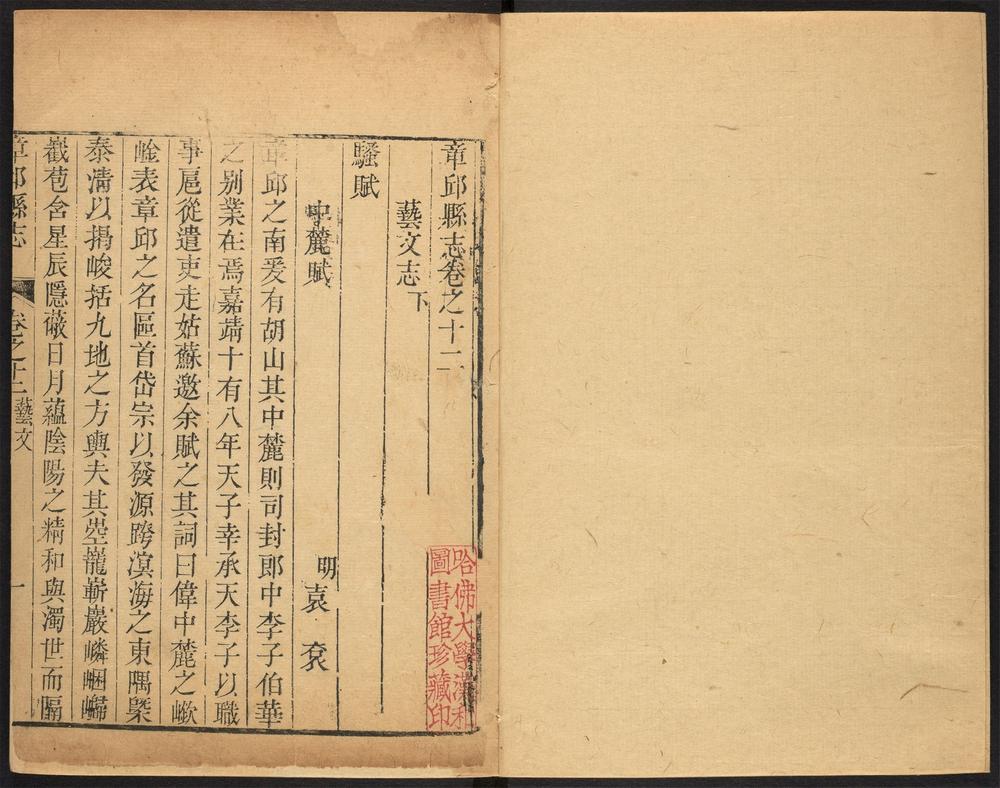 章邱縣志卷之十二
藝文志下
騷賦
中麓賦
明袁袠
章邱之南爰有胡山其中麓則司封郎中李子伯華
之别業在焉嘉靖十有八年天子幸承天李子以職
事扈從遣吏走姑蘇邀余賦之其詞曰偉中麓之嶔
崯表章邱之名區首岱宗以發源跨溟海之東隅槩
泰清以揭峻括九地之方輿夫其𡾊巃嶄巖嶙崓巋
巀苞含星辰隱蔽日月蘊陰陽之精和與濁世而隔
章邱縣志
卷之十二藝文
一
哈佛大學漢和
圖書館珍藏印